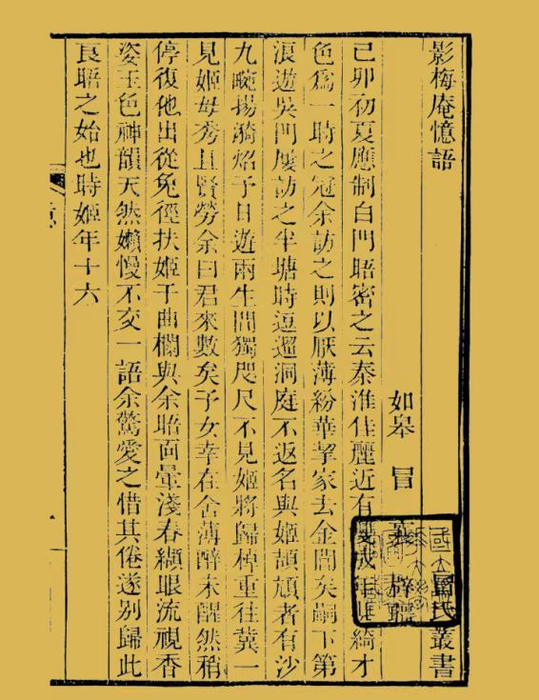 影梅庵憶語 氏叢書
如皋 冒 襄 辟疆
己卯初夏應制白門晤密之云秦淮佳麗近有雙成年甚綺才
色爲一時之冠余訪之則以厭薄紛華挈家去金閶矣嗣下第
浪遊吳門屢訪之半塘時逗遛洞庭不返名與姬頡頏者有沙
九畹揚漪炤予日遊兩生間獨咫尺不見姬將歸棹重往冀一
見姬母秀且賢勞余曰君來數矣予女幸在舍薄醉未醒然稍
停復他出從兔徑扶姬于曲欄與余晤面暈淺春纈眼流視香
姿玉色神韻天然嬾慢不交一語余驚愛之惜其倦遂別歸此
良晤之始也時姬年十六